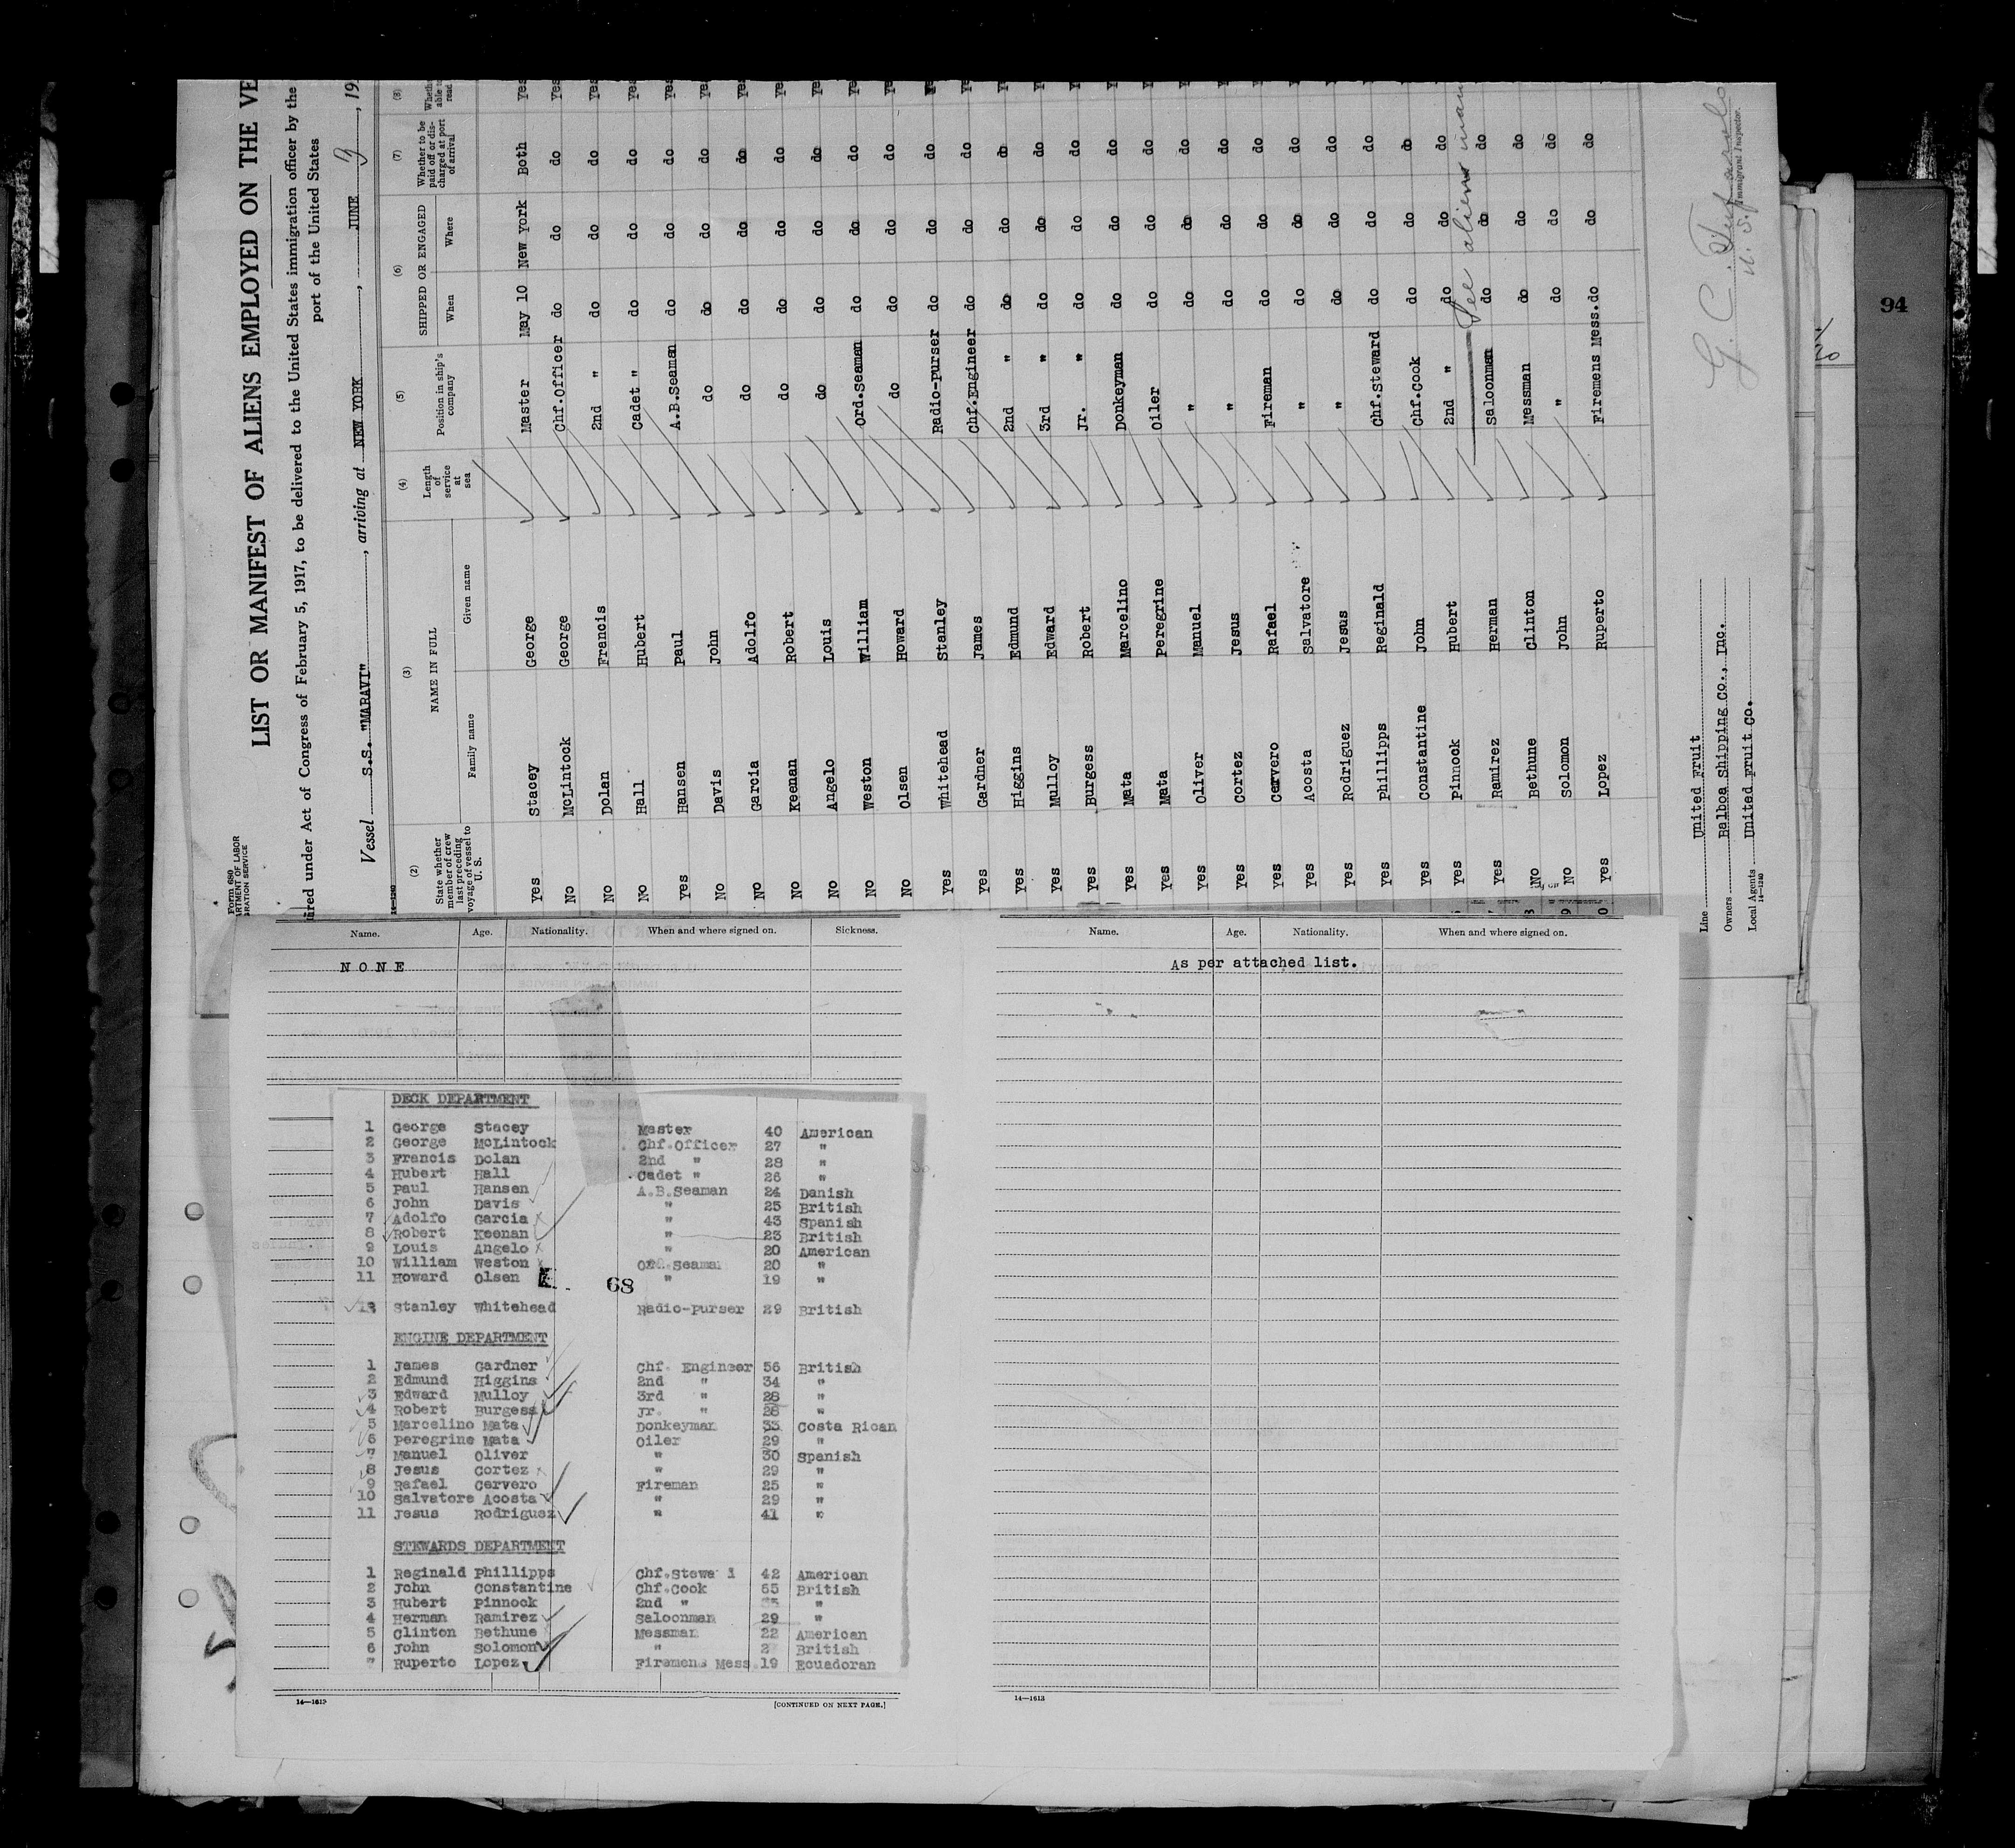 Form 680
LIST OR MANIFEST OF ALIENS EMPLOYED ON THE VE
ired under Act of Congress of February 5, 1917, to be delivered to the United States immigration officer by the
port of the United States
Vessel S.S. "MARAVI", arriving at NEW YORK, JUNE 9, 19
(2) (3) (4) (5) (6) (7) (8)
State whether member of crew last preceding voyage of vessel to U. S. NAME IN FULL Family name Given name Length of service at sea Position in ship's company SHIPPED OR ENGAGED When Where Whether to be paid off or discharged at port of arrival Wheth able read
Yes Stacey George Master May 10 New York Both Yes
No McLintock George Chf.Officer do do do Yes
No Dolan Francis 2nd " do do do Yes
No Hall Hubert Cadet " do do do Yes
Yes Hansen Paul A.B.Seaman do do do Yes
No Davis John do do do do Ye
No Garcia Adolfo do do do do Ye
No Keenan Robert do do do do Ye
No Angelo Louis do do do do Ye
No Weston William Ord.Seaman do do do Ye
No Olsen Howard do do do do Ye
Yes Whitehead Stanley Radio-Purser do do do Ye
Yes Gardner James Chf.Engineer do do do Ye
Yes Higgins Edmund 2nd " do do do Y
Yes Mulloy Edward 3rd " do do do Y
Yes Burgess Robert Jr. " do do do Y
Yes Mata Marcelino Donkeyman do do do Y
Yes Mata Peregrine Oiler do do do Y
Yes Oliver Manuel " do do do Y
Yes Cortez Jesus " do do do Y
Yes Cervero Rafael Fireman do do do Y
Yes Acosta Salvatore " do do do Y
Yes Rodriguez Jesus " do do do Y
Yes Phillipps Reginald Chf.Steward do do do Y
Yes Constantine John Chf.Cook do do do
Yes Pinnock Hubert 2nd " do do do
See aliens man
Yes Ramirez Herman Saloonman do do do
No Bethune Clinton Messman do do do
No Solomon John " do do do
Yes Lopez Ruperto Firemens Mess. do do do
Line United Fruit
Owners Balboa Shipping Co., Inc.
Local Agents United Fruit Co.
14—1240
G. C.
U. S. Immigrant Inspector.
94
Name. Age. Nationality. When and where signed on. Sickness.
NONE
DECK DEPARTMENT
1 George Stacey Master 40 American
2 George McLintock Chf.Officer 27 "
3 Francis Dolan 2nd " 28 "
4 Hubert Hall Cadet " 26 "
5 Paul Hansen A.B.Seaman 24 Danish
6 John Davis " 25 British
7 Adolfo Garcia " 43 Spanish
8 Robert Keenan " 23 British
9 Louis Angelo " 20 American
10 William Weston Ord.Seaman 20 "
11 Howard Olsen " 19 "
68
Stanley Whitehead Radio-Purser 29 British
ENGINE DEPARTMENT
1 James Gardner Chf. Engineer 56 British
2 Edmund Higgins 2nd " 34 "
3 Edward Mulloy 3rd " 28 "
4 Robert Burgess Jr. " 28 "
5 Marcelino Mata Donkeyman 33 Costa Rican
6 Peregrine Mata Oiler 29 "
7 Manuel Oliver " 30 Spanish
8 Jesus Cortez " 29 "
9 Rafael Cervero Fireman 25 "
10 Salvatore Acosta " 29 "
11 Jesus Rodriguez " 41 "
STEWARDS DEPARTMENT
1 Reginald Phillipps Chf.Stewa d 42 American
2 John Constantine Chf.Cook 65 British
3 Hubert Pinnock 2nd " "
4 Herman Ramirez Saloonman 29 "
5 Clinton Bethune Messman 22 American
6 John Solomon " 2 British
7 Ruperto Lopez Firemens Mess. 19 Ecuadoran
14—1613 [CONTINUED ON NEXT PAGE.]
Name. Age. Nationality. When and where signed on.
As per attached list.
14—1613